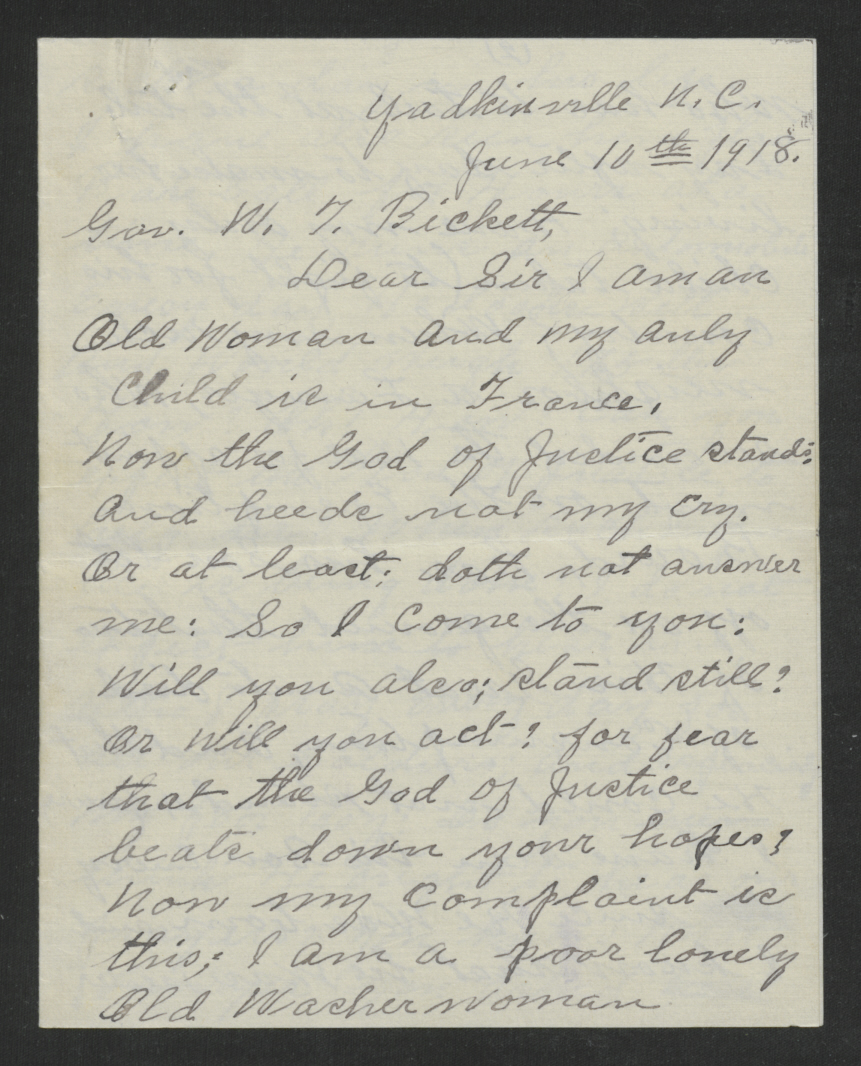 Yadkinville N. C.
June 10th 1918.
Gov. W. T. Bickett,
Dear Sir I am an
Old Woman and my only
Child is in France.
Now the God of Justice stands;
and heeds not my cry.
Or at least; doth not answer
me: So I come to you:
Will you also; stand still?
Or will you act? for fear
that the God of Justice
beats down your hopes?
Now my complaint is
this; I am a poor lonely
Old Washerwoman